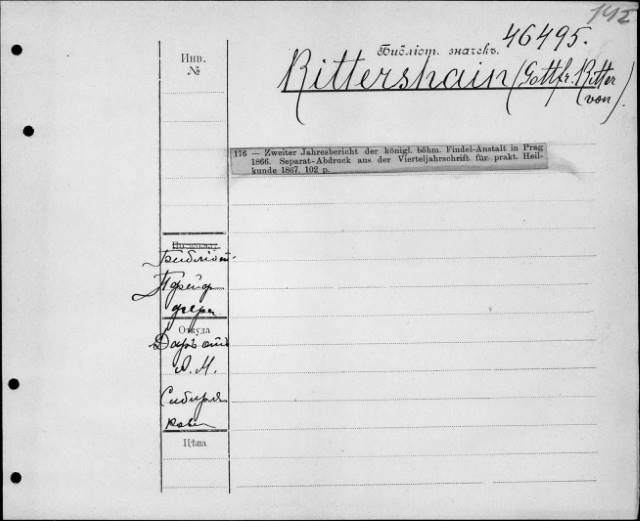 142
Библіот. значекъ. 46495.
Инв.
№
Rittershain (Gottfr. Ritter
von).
176 — Zweiter Jahresbericht der königl. böhm. Findel-Anstalt in Prag
1866. Separat-Abdruck aus der Vierteljahrschrift für prakt. Heil-
kunde 1867. 102 p.
Библіот.
Пфейф
фера
Откуда
Даръ отъ
А. М.
Сибиря
кова
Цѣна